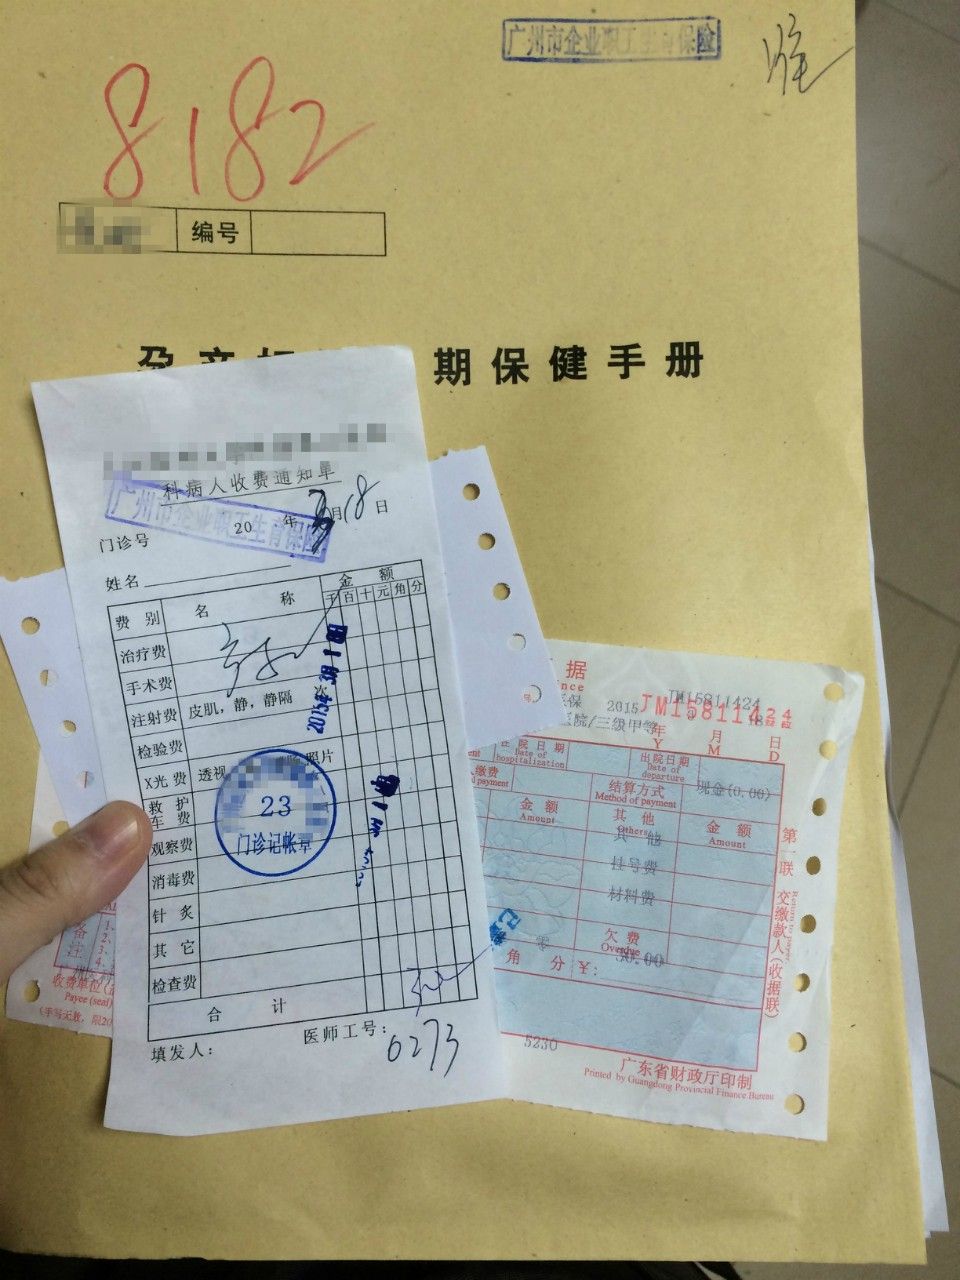 广州市企业职工生育保险
8182
编号
孕产妇 期保健手册
科病人收费通知单
广州市企业职工生育保险
20 年 3月18日
门诊号
姓名
费别 名称 金额
千百十元角分
治疗费
手术费
注射费 皮肌，静，静隔 次
2015年3月18日
检验费
X光费 透视 照片
救护车费
23
门诊记帐章
观察费
消毒费
针灸
其它
检查费
合计
填发人： 医师工号：
0273
据
JM15811424
JM15811424
医保 2015
医院/三级甲等
年 月 日
Y M D
住院日期
Date of hospitalization
出院日期
Date of departure
缴费
payment
结算方式
Method of payment
现金(0.00)
金额
Amount
其他
Others
金额
Amount
其 他
挂号费
材料费
欠费
Overdue
零
角 分 ￥：
30.00
5230
第一联 交缴款人（收据联）
Return to payer
广东省财政厅印制
Printed by Guangdong Provincial Finance Bureau
备注
1.
2.
3.
4.
收费单位(
Payee (seal)
(手写无效，限20